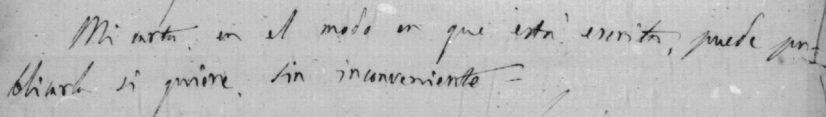 Mi carta, en el modo en que está escrita, puede pu-
blicarla si quiere, sin inconveniente -